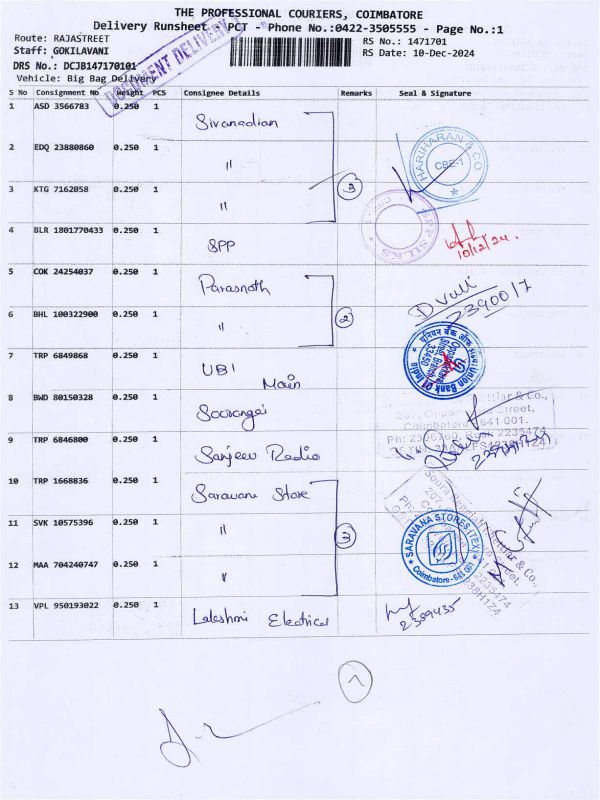 THE PROFESSIONAL COURIERS, COIMBATORE
Delivery Runsheet - PCT - Phone No.:0422-3505555 - Page No.:1
Route: RAJASTREET
RS No.: 1471701
Staff: GOKILAVANI
RS Date: 10-Dec-2024
DRS No.: DCJB147170101
Vehicle: Big Bag Delivery
DOCUMENT DELIVERY
S No Consignment No Weight PCS Consignee Details Remarks Seal & Signature
1 ASD 3566783 0.250 1 Sivanadian
2 EDQ 23880860 0.250 1 "
HARIHARAN & CO
CBE-1
3 KTG 7162058 0.250 1 " 3
4 BLR 1801770433 0.250 1 SPP
SPP SILKS
10/12/24.
5 COK 24254037 0.250 1 Parasnath
D Valli
2390017
6 BHL 100322900 0.250 1 " 2
7 TRP 6849868 0.250 1 UBI Main
Union Bank Of India
8 BWD 80150328 0.250 1 Soorangei
Street,
Coimbatore 641 001.
9 TRP 6846800 0.250 1 Sanjeev Radio
10 TRP 1668836 0.250 1 Saravana Store
11 SVK 10575396 0.250 1 " 3
SARAVANA STORES (TEX)
Coimbatore - 641 001
12 MAA 704240747 0.250 1 "
13 VPL 950193022 0.250 1 Lakshmi Electrical
2389435